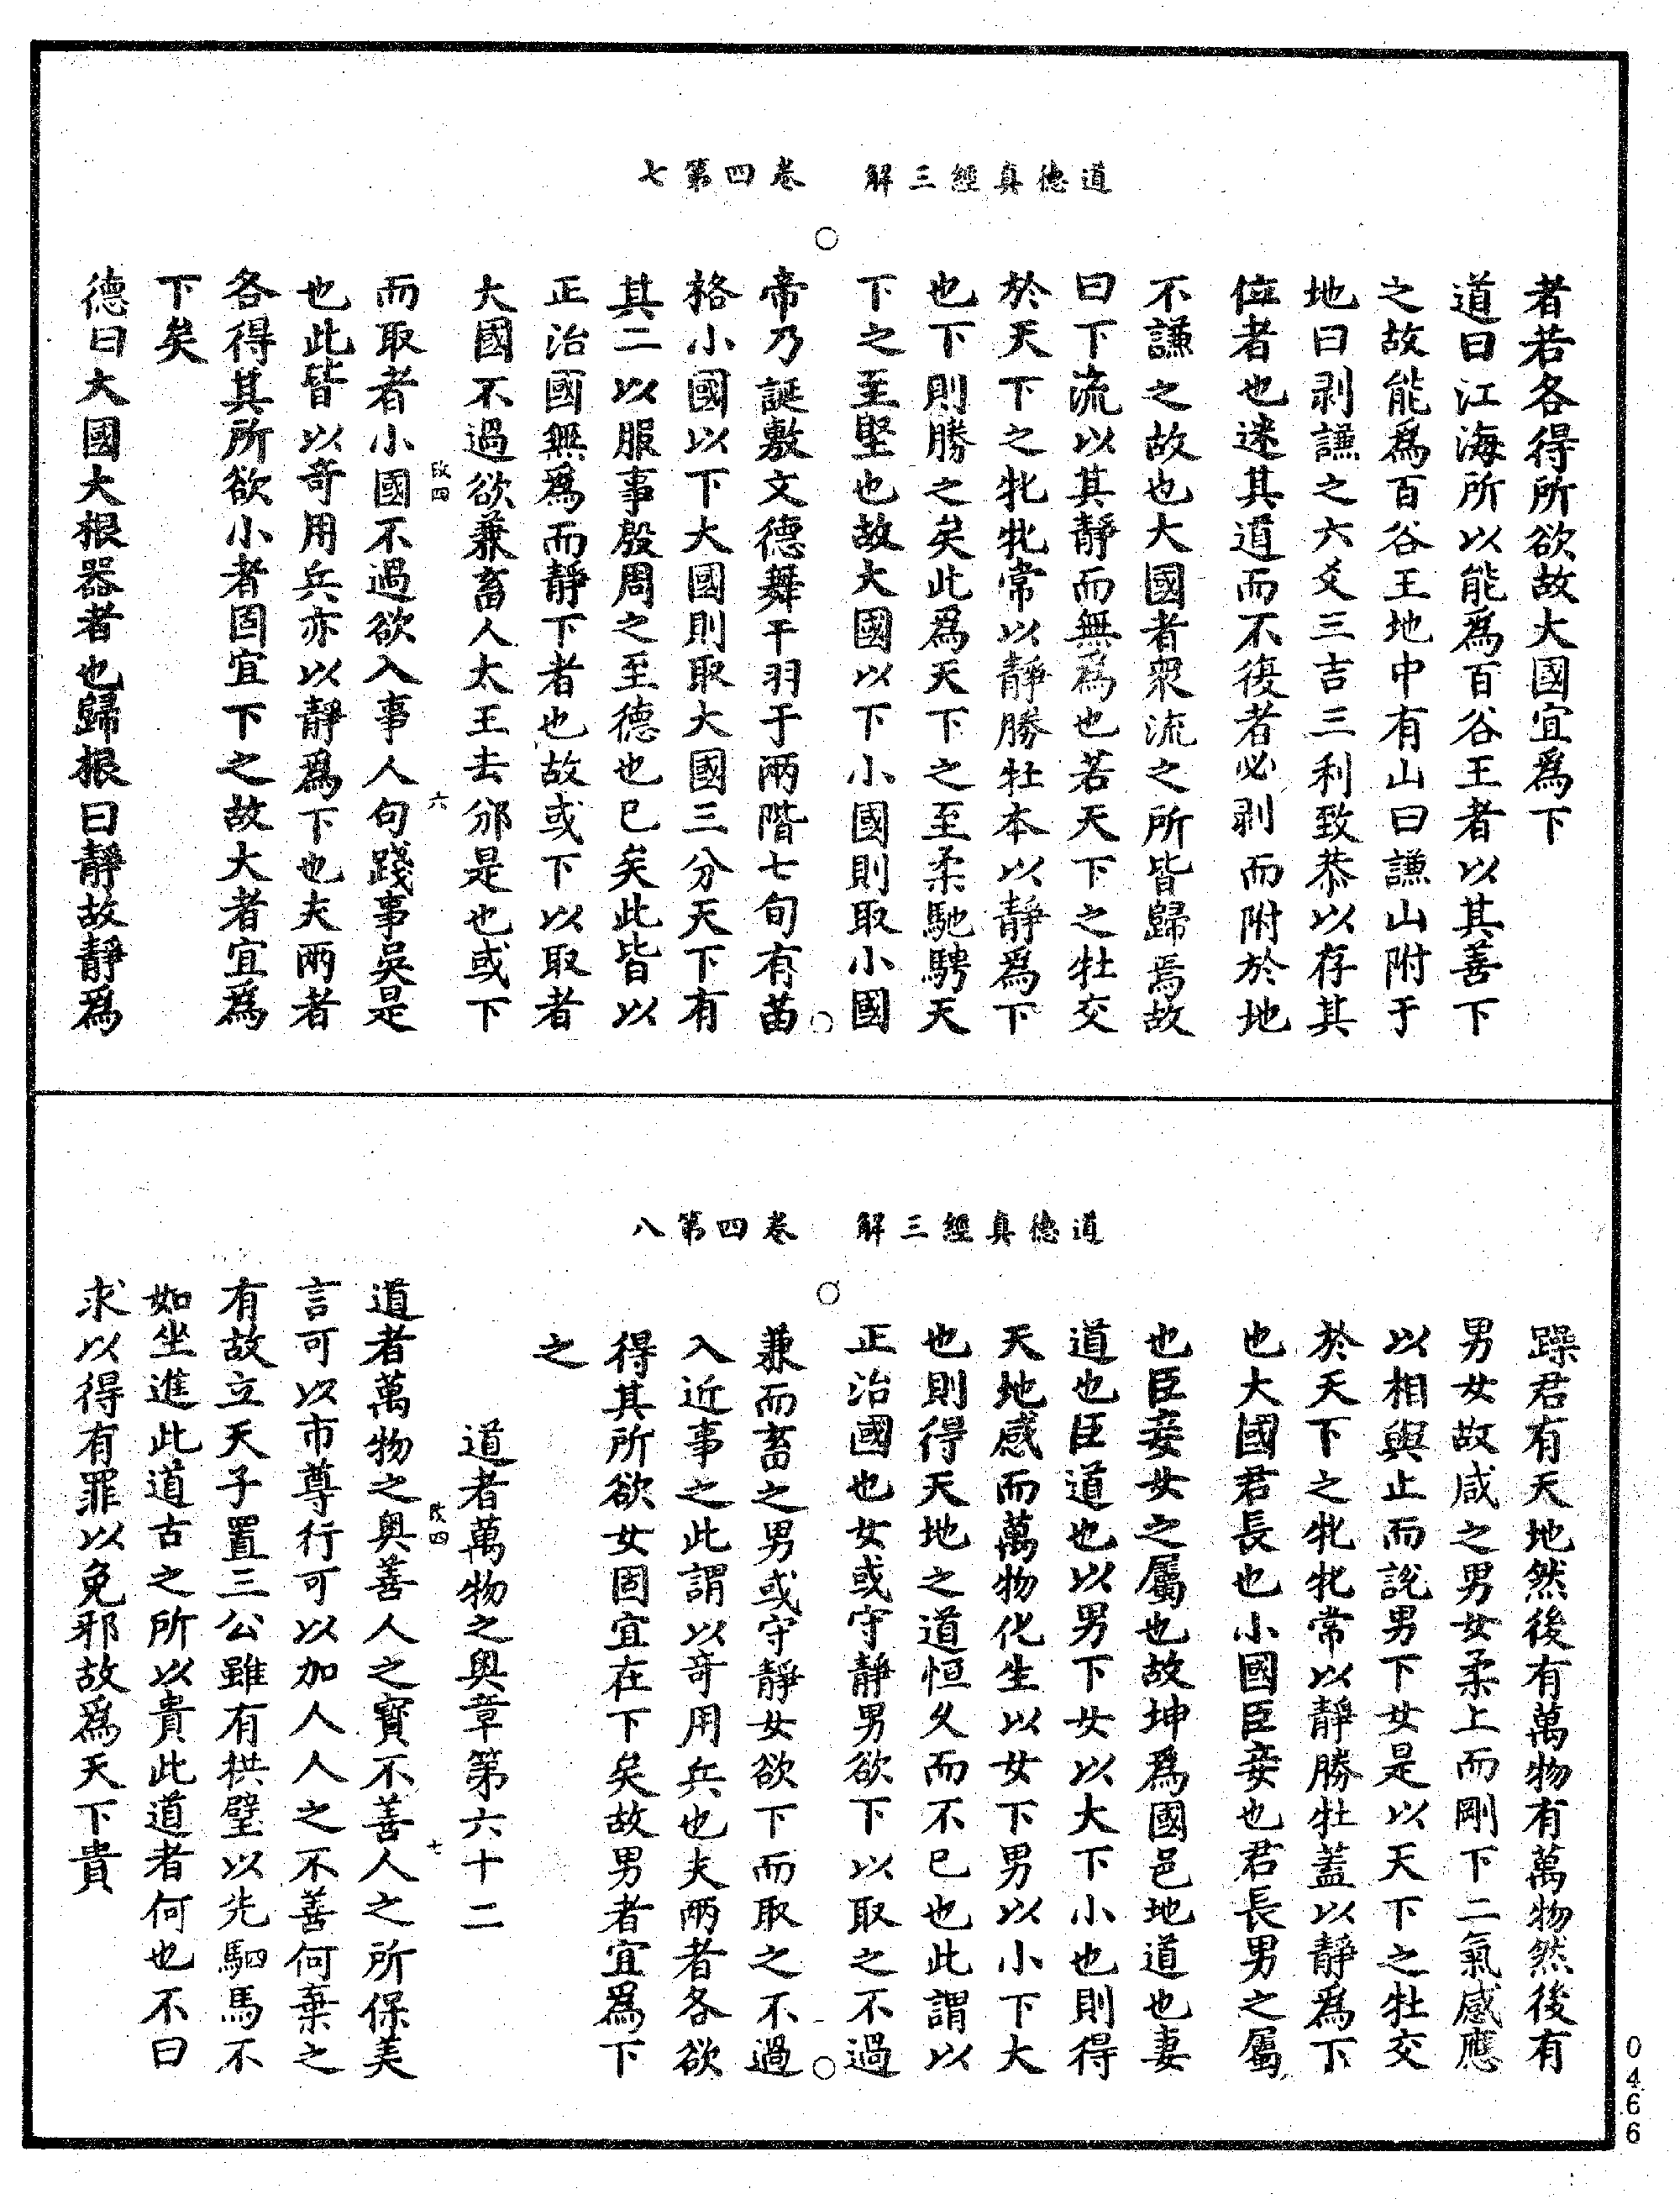 道德真經三解　卷四第七
者若各得所欲故大國宜為下
道曰江海所以能為百谷王者以其善下
之故能為百谷王地中有山曰謙山附于
地曰剥謙之六爻三吉三利致恭以存其
位者也迷其道而不復者必剥而附於地
不謙之故也大國者衆流之所皆歸焉故
曰下流以其靜而無為也若天下之牡交
於天下之牝牝常以靜勝牡本以靜為下
也下則勝之矣此為天下之至柔馳騁天
下之至堅也故大國以下小國則取小國
帝乃誕敷文德舞干羽于兩階七旬有苗
格小國以下大國則取大國三分天下有
其二以服事殷周之至德也已矣此皆以
正治國無為而靜下者也故或下以取者
大國不過欲兼畜人太王去邠是也或下
改四
六
而取者小國不過欲入事人句踐事吳是
也此皆以奇用兵亦以靜為下也夫兩者
各得其所欲小者固宜下之故大者宜為
下矣
德曰大國大根器者也歸根曰靜故靜為
道德真經三解　卷四第八
躁君有天地然後有萬物有萬物然後有
男女故咸之男女柔上而剛下二氣感應
以相與止而說男下女是以天下之牡交
於天下之牝牝常以靜勝牡蓋以靜為下
也大國君長也小國臣妾也君長男之屬
也臣妾女之屬也故坤為國邑地道也妻
道也臣道也以男下女以大下小也則得
天地感而萬物化生以女下男以小下大
也則得天地之道恒久而不已也此謂以
正治國也女或守靜男欲下以取之不過
兼而畜之男或守靜女欲下而取之不過
入近事之此謂以奇用兵也夫兩者各欲
得其所欲女固宜在下矣故男者宜為下
之
道者萬物之奥章第六十二
改四
七
道者萬物之奥善人之寳不善人之所保美
言可以市尊行可以加人人之不善何棄之
有故立天子置三公雖有拱璧以先駟馬不
如坐進此道古之所以貴此道者何也不曰
求以得有罪以免邪故為天下貴
0466